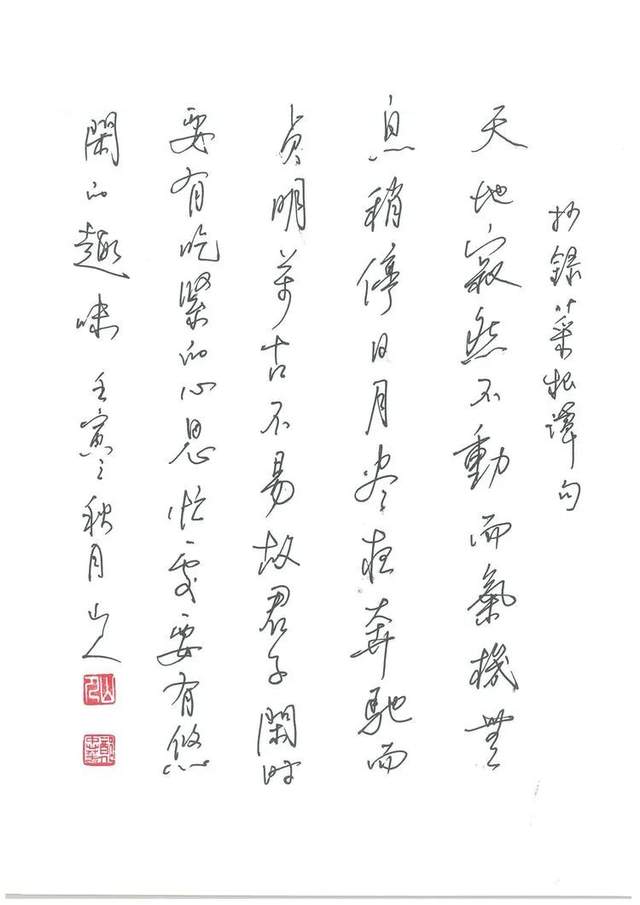 抄錄菜根譚句
天地寂然不動而氣機無
息稍停日月尽在奔馳而
貞明萬古不易故君子閑時
要有吃緊的心思忙處要有悠
閑的趣味 壬寅之秋月 山人
山人